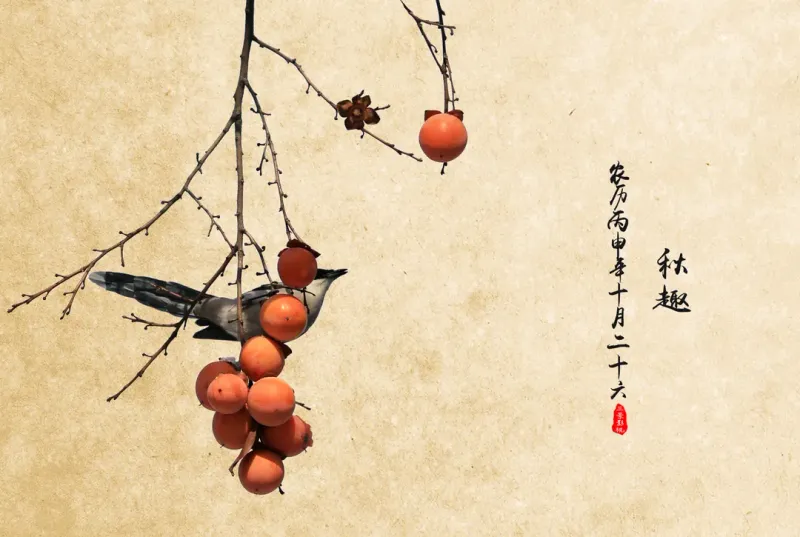 秋趣
农历丙申年十月二十六